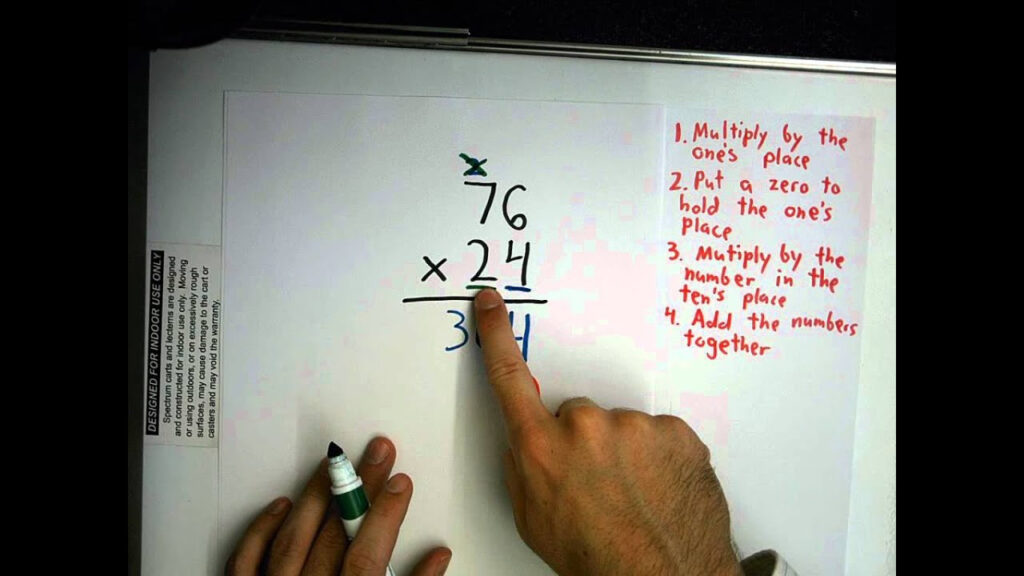 76
× 24
3 4
1. Multiply by the
one's place
2. Put a zero to
hold the one's
place
3. Mutiply by the
number in the
ten's place
4. Add the numbers
together
DESIGNED FOR INDOOR USE ONLY
Spectrum carts and lecterns are designed
and constructed for indoor use only. Moving
or using outdoors, or on excessively rough
surfaces, may cause damage to the cart or
casters and may void the warranty.